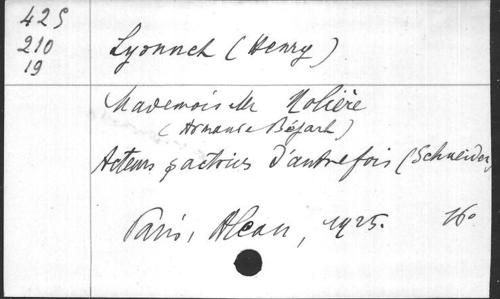 425
210
19
Lyonnet (Henry)
Mademoiselle Molière
(Armande Béjart)
Acteurs & actrices d'autrefois (Schneider)
Paris, Alcan, 1925. 16°